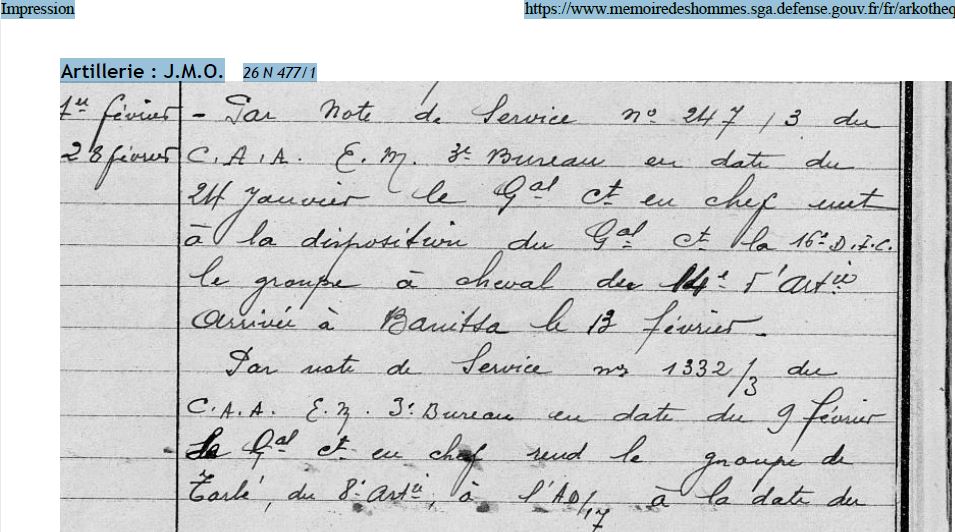 Impression
https://www.memoiredeshommes.sga.defense.gouv.fr/fr/arkotheq
Artillerie : J.M.O. 26 N 477/1
1er février - Par Note de Service no 247 / 3 du
28 février C.A.A. E.M. 3e Bureau en date du
24 Janvier le Gal Ct en chef met
à la disposition du Gal Ct la 16e D.I.C.
le groupe à cheval du 14e d'Artie
Arrivée à Banitsa le 13 février -
Par note de Service no 1332/3 du
C.A.A. E.M. 3e Bureau en date du 9 février
Le Gal Ct en chef rend le groupe de
du 8e Artie, à l'AD/17 à la date du